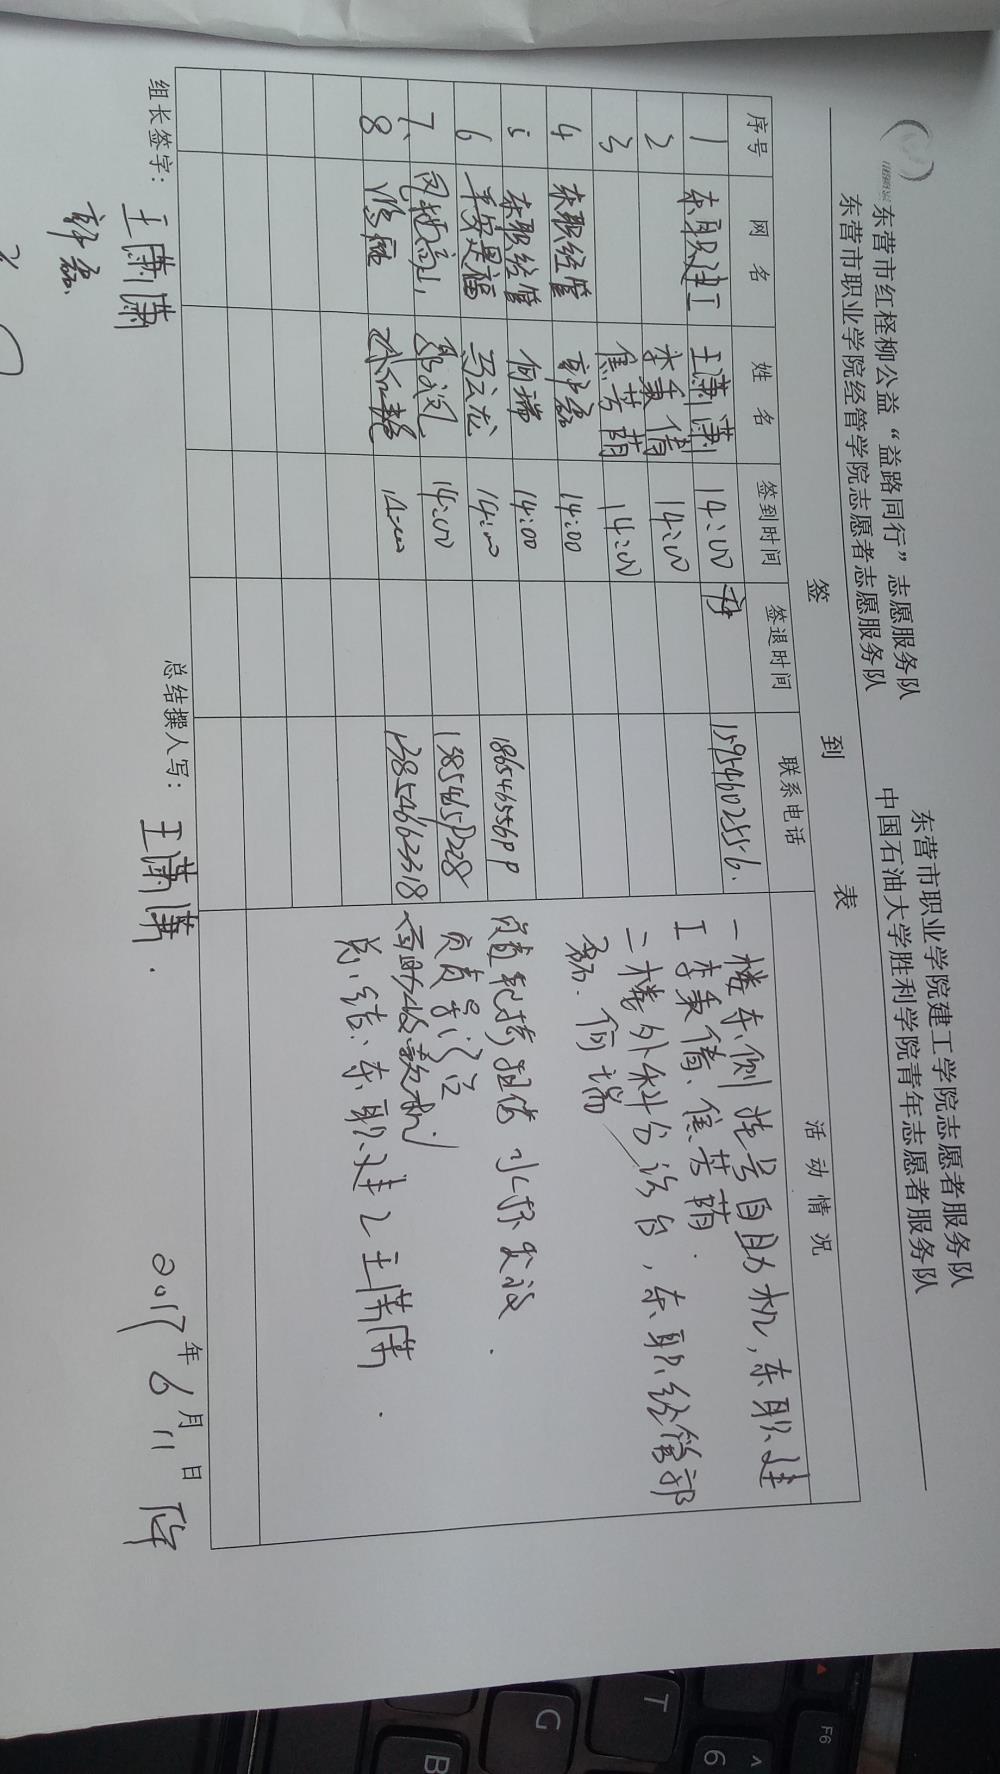 东营市红柽柳公益“益路同行”志愿服务队 东营市职业学院建工学院志愿者服务队
东营市职业学院经管学院志愿者志愿服务队 中国石油大学胜利学院青年志愿者服务队
签 到 表
序号 网 名 姓 名 签到时间 签退时间 联系电话 活 动 情 况
1 东职建工 王潇潇 14:00 15954602556.
2 李秉倩 14:00
3 焦芳萌 14:00
4 东职经管 郭磊 14:00
5 东职经管 何瑞 14:00
6 平安是福 马云龙 14:00
7、 14:00
8 14:00 13854662318
一楼东侧挂号自助机,东职建
工李秉倩、焦芳萌.
二楼外科分诊台,东职经管部
磊.何瑞
负责
负责
自助收款机
总结:东职建工王潇潇.
组长签字: 王潇潇 总结撰人写: 王潇潇. 2017年6月11日
郭磊.
F6
^
6
T
G
B